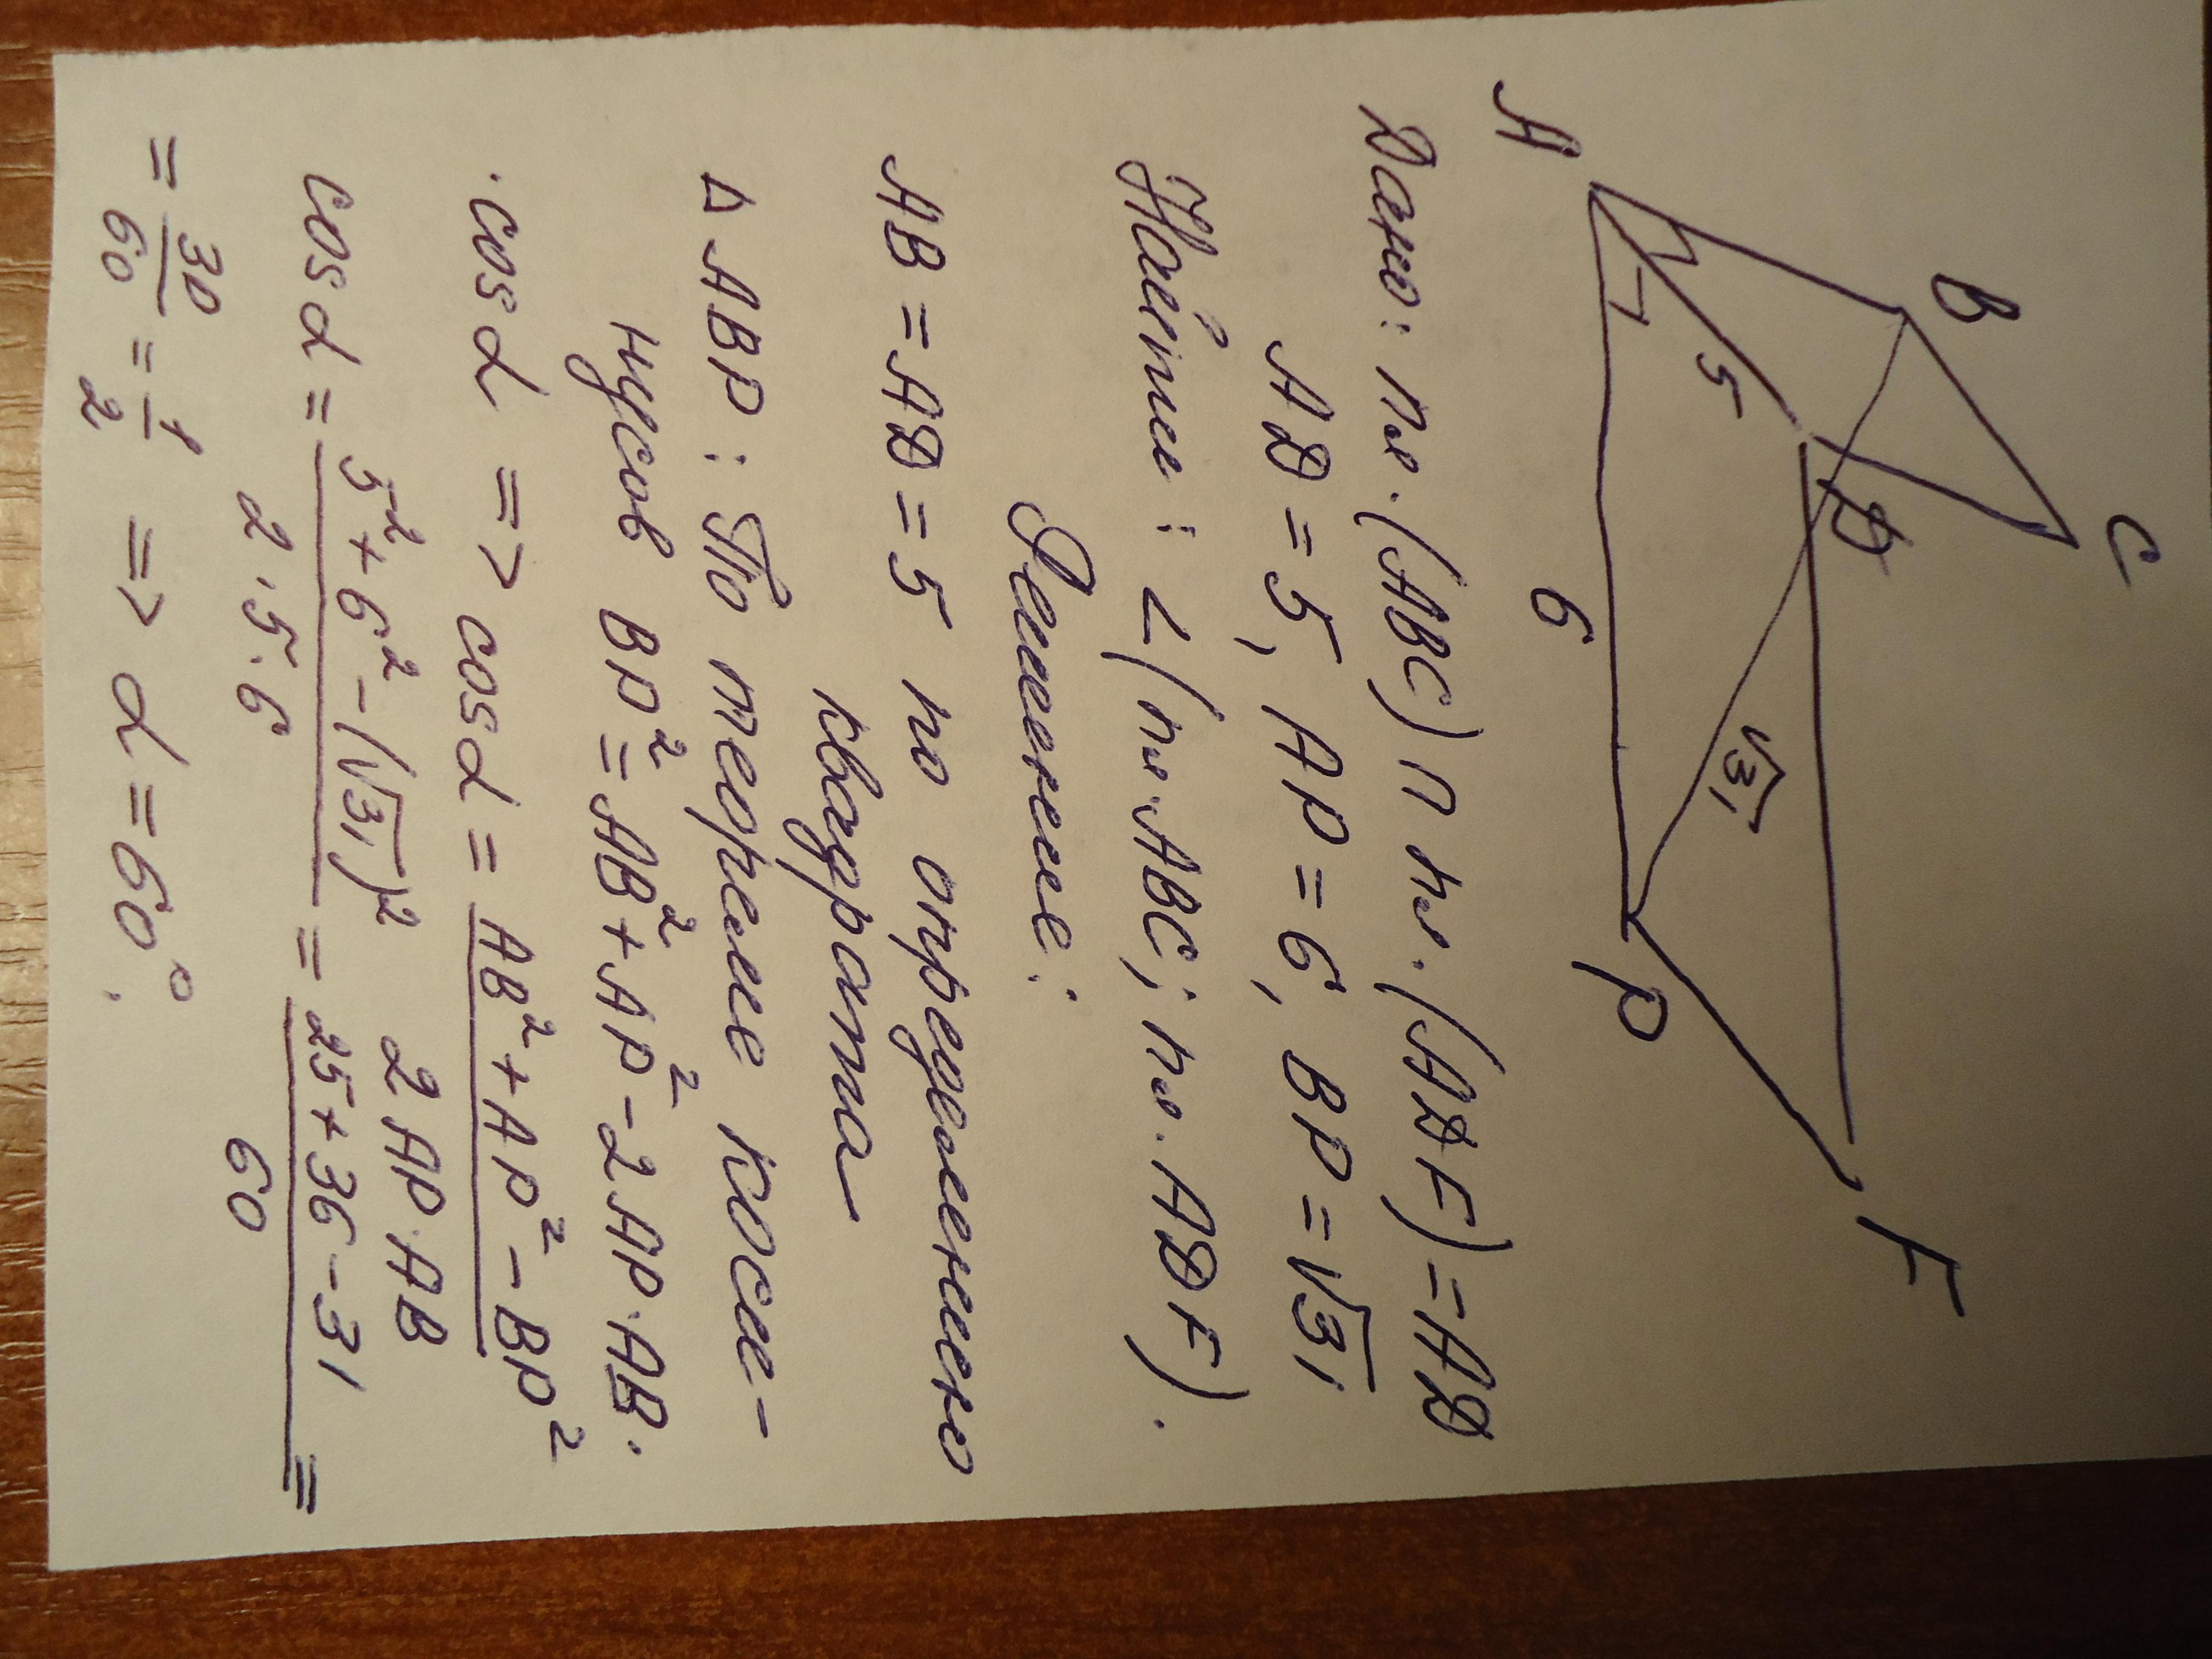 B
C
A
5
D
√31
F
6
P
Дано: пл. (ABC) ∩ пл. (ADF) = AD
AD = 5, AP = 6, BP = √31
Найти: ∠(пл. ABC; пл. ADF).
Решение:
AB = AD = 5 по определению
квадрата
Δ ABP: По теореме коси-
нусов BP² = AB² + AP² - 2 AP·AB·
·cos α => cos α = AB² + AP² - BP² / 2 AP·AB
cos α = 5² + 6² - (√31)² / 2·5·6 = 25 + 36 - 31 / 60 =
= 30/60 = 1/2 => α = 60°.